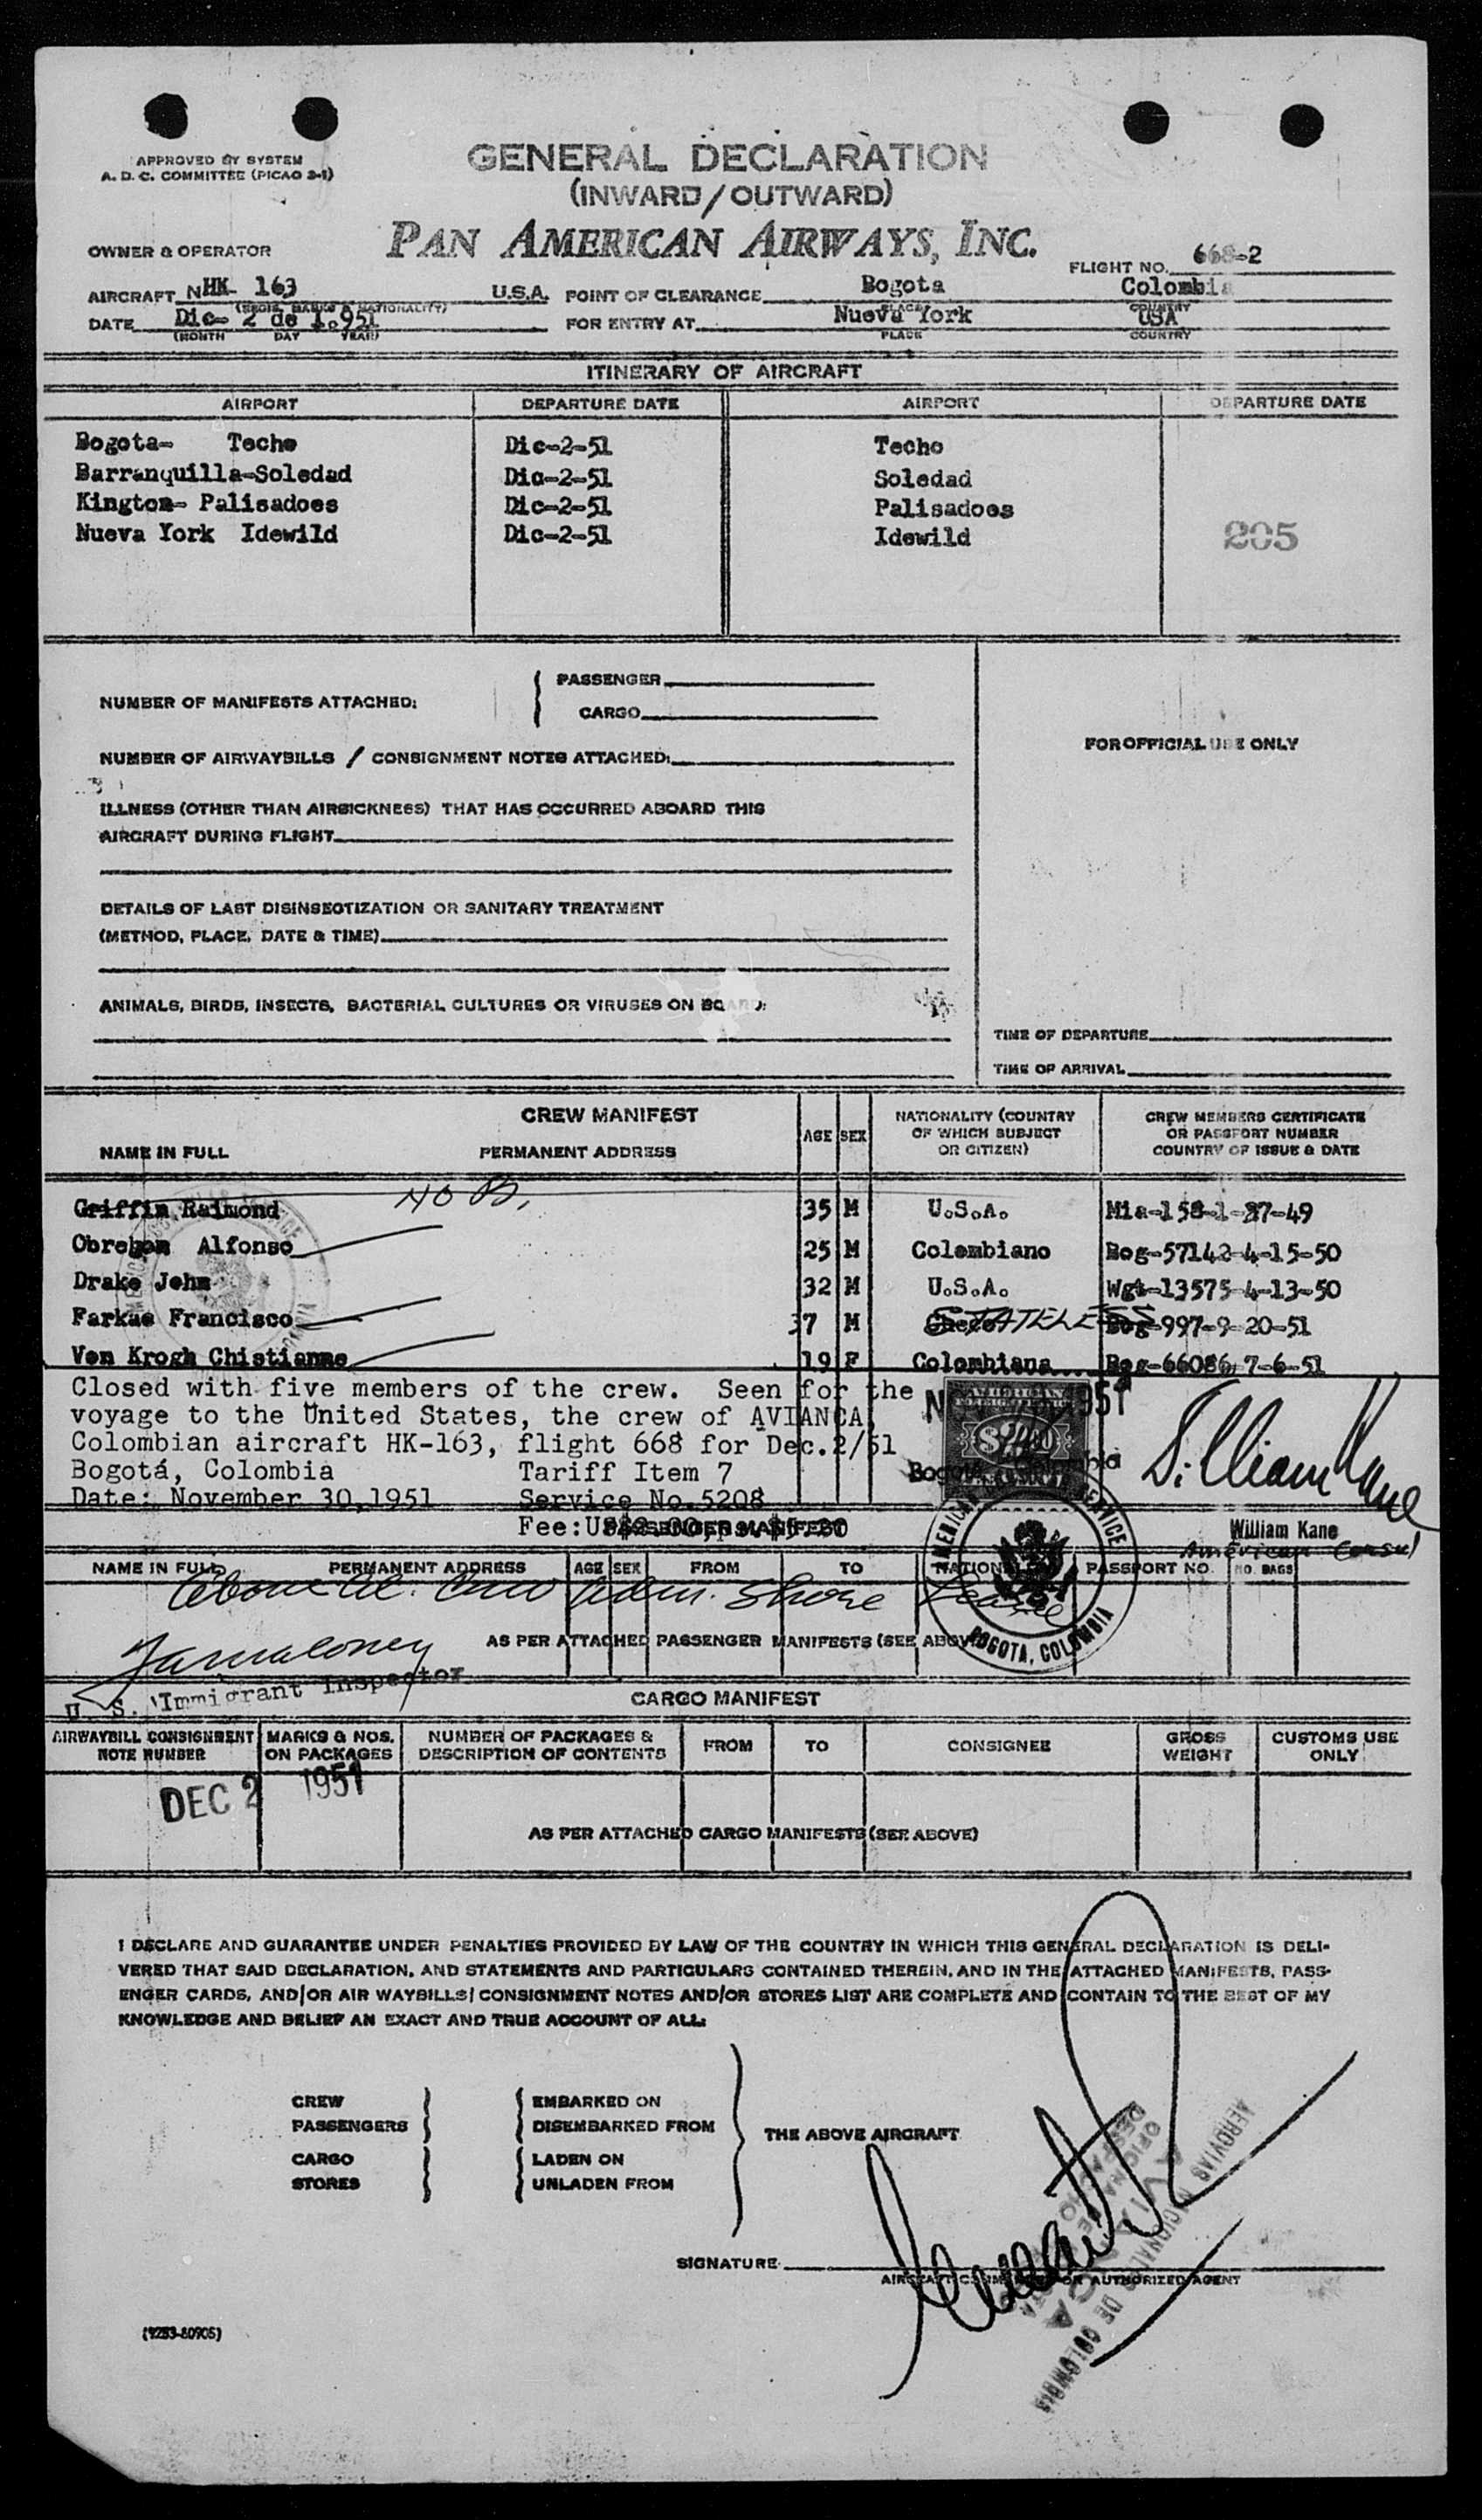 APPROVED BY SYSTEM
A. D. C. COMMITTEE (PICAO 2-1)
GENERAL DECLARATION
(INWARD/OUTWARD)
PAN AMERICAN AIRWAYS, INC.
OWNER & OPERATOR
FLIGHT NO. 668-2
AIRCRAFT NHK- 163 U.S.A. POINT OF CLEARANCE Bogota Colombia
(REGIS. MARKS & NATIONALITY) PLACE COUNTRY
DATE Dic- 2 de 1.951 FOR ENTRY AT Nueva York USA
(MONTH DAY YEAR) PLACE COUNTRY
ITINERARY OF AIRCRAFT
AIRPORT DEPARTURE DATE AIRPORT DEPARTURE DATE
Bogota- Techo Dic-2-51 Techo
Barranquilla-Soledad Dic-2-51 Soledad
Kington- Palisadoes Dic-2-51 Palisadoes
Nueva York Idewild Dic-2-51 Idewild 205
NUMBER OF MANIFESTS ATTACHED: PASSENGER
CARGO
NUMBER OF AIRWAYBILLS / CONSIGNMENT NOTES ATTACHED:
FOR OFFICIAL USE ONLY
ILLNESS (OTHER THAN AIRSICKNESS) THAT HAS OCCURRED ABOARD THIS
AIRCRAFT DURING FLIGHT
DETAILS OF LAST DISINSECTIZATION OR SANITARY TREATMENT
(METHOD, PLACE, DATE & TIME)
ANIMALS, BIRDS, INSECTS, BACTERIAL CULTURES OR VIRUSES ON BOARD:
TIME OF DEPARTURE
TIME OF ARRIVAL
CREW MANIFEST
NAME IN FULL PERMANENT ADDRESS AGE SEX NATIONALITY (COUNTRY OF WHICH SUBJECT OR CITIZEN) CREW MEMBERS CERTIFICATE OR PASSPORT NUMBER COUNTRY OF ISSUE & DATE
Griffin Raimond NO B, 35 M U.S.A. Mia-158-1-27-49
Obregon Alfonso 25 M Colombiano Bog-57142-4-15-50
Drake John 32 M U.S.A. Wgt-13575-4-13-50
Farkas Francisco 37 M STATELESS Bog-997-9-20-51
Von Krogh Chistianne 19 F Colombiana Bog-66086 7-6-51
Closed with five members of the crew. Seen for the
voyage to the United States, the crew of AVIANCA,
Colombian aircraft HK-163, flight 668 for Dec.2/51
Bogotá, Colombia Tariff Item 7
Date: November 30,1951 Service No.5208
William Kane
PASSENGER MANIFEST
William Kane
American Consul
NAME IN FULL PERMANENT ADDRESS AGE SEX FROM TO NATIONALITY PASSPORT NO. NO. BAGS
AMERICAN SERVICE
BOGOTA, COLOMBIA
AS PER ATTACHED PASSENGER MANIFESTS (SEE ABOVE)
U. S. Immigrant Inspector
CARGO MANIFEST
AIRWAYBILL CONSIGNMENT NOTE NUMBER MARKS & NOS. ON PACKAGES NUMBER OF PACKAGES & DESCRIPTION OF CONTENTS FROM TO CONSIGNEE GROSS WEIGHT CUSTOMS USE ONLY
DEC 2 1951
AS PER ATTACHED CARGO MANIFESTS (SEE ABOVE)
I DECLARE AND GUARANTEE UNDER PENALTIES PROVIDED BY LAW OF THE COUNTRY IN WHICH THIS GENERAL DECLARATION IS DELI-
VERED THAT SAID DECLARATION, AND STATEMENTS AND PARTICULARS CONTAINED THEREIN, AND IN THE ATTACHED MANIFESTS, PASS-
ENGER CARDS, AND/OR AIR WAYBILLS/ CONSIGNMENT NOTES AND/OR STORES LIST ARE COMPLETE AND CONTAIN TO THE BEST OF MY
KNOWLEDGE AND BELIEF AN EXACT AND TRUE ACCOUNT OF ALL:
CREW EMBARKED ON
PASSENGERS DISEMBARKED FROM
THE ABOVE AIRCRAFT
CARGO LADEN ON
STORES UNLADEN FROM
SIGNATURE
AIRCRAFT COMMANDER OR AUTHORIZED AGENT
AEROVIAS NACIONALES DE COLOMBIA
AVIANCA
(9253-80905)